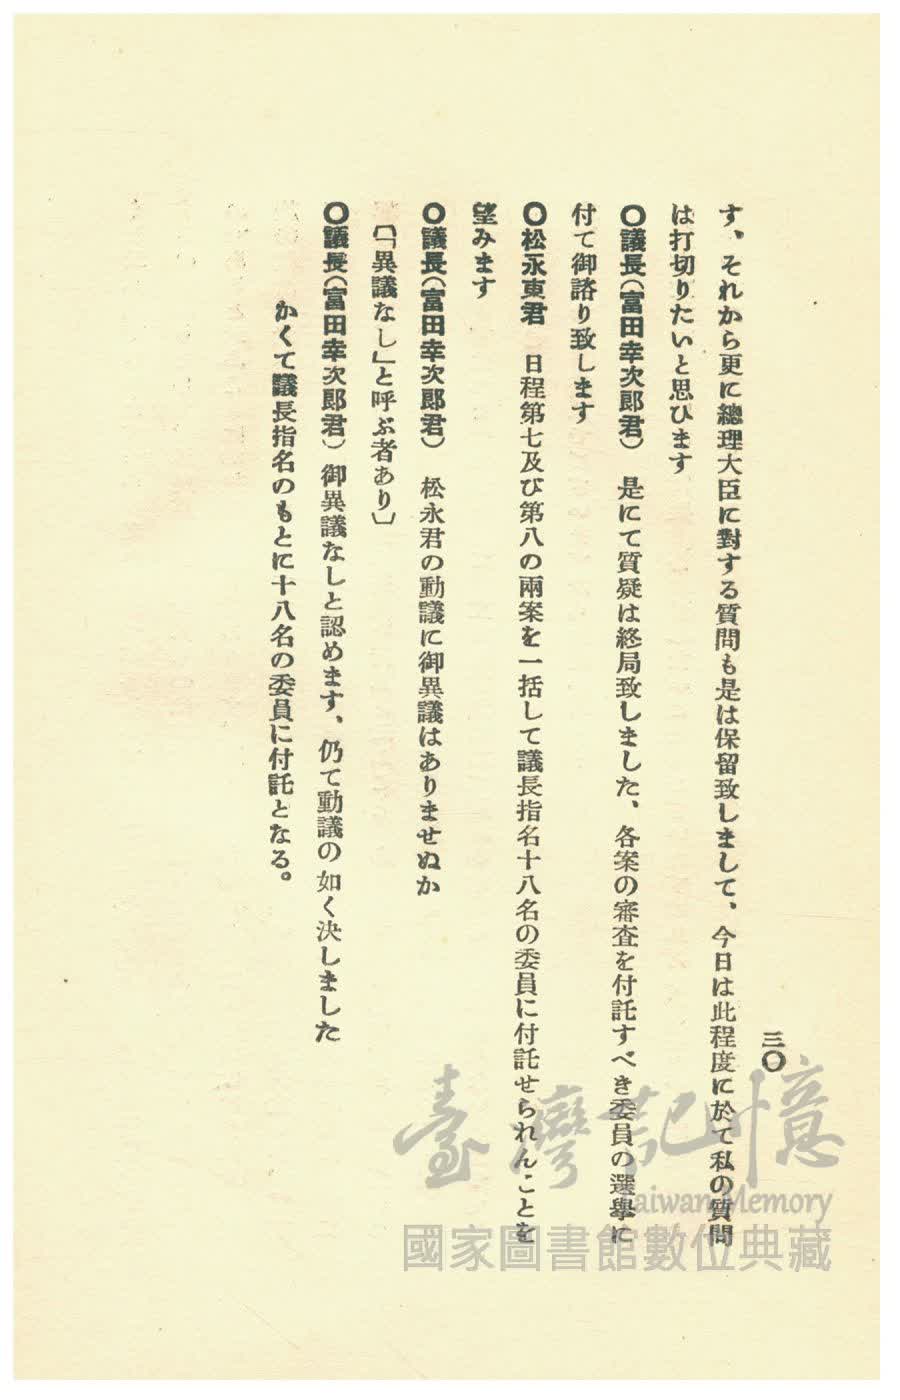 三〇
す、それから更に總理大臣に對する質問も是は保留致しまして、今日は此程度に於て私の質問
は打切りたいと思ひます
〇議長(富田幸次郞君) 是にて質疑は終局致しました、各案の審査を付託すべき委員の選擧に
付て御諮り致します
〇松永東君 日程第七及び第八の兩案を一括して議長指名十八名の委員に付託せられんことを
望みます
〇議長(富田幸次郞君) 松永君の動議に御異議はありませぬか
〔「異議なし」と呼ぶ者あり〕
〇議長(富田幸次郞君) 御異議なしと認めます、仍て動議の如く決しました
かくて議長指名のもとに十八名の委員に付託となる。
臺灣記憶
Taiwan Memory
國家圖書館數位典藏